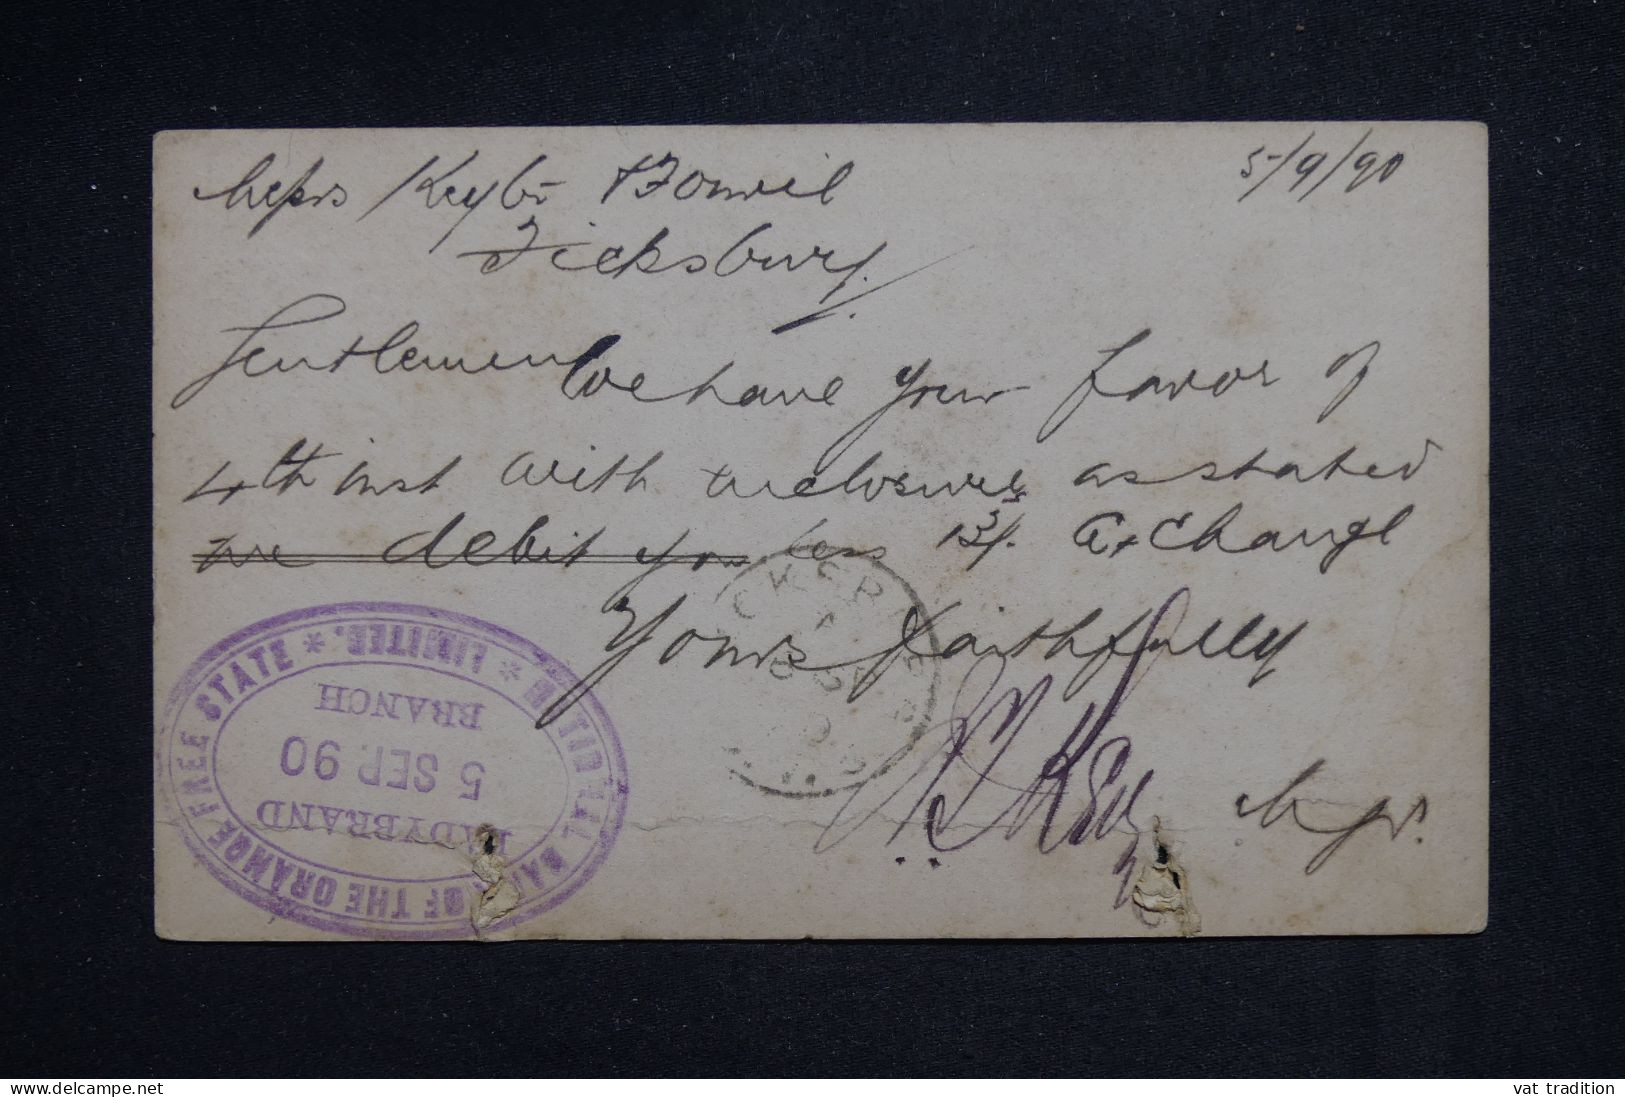 Messrs 5/9/90
Ficksburg.
Gentlemen We have your favor of
4th inst with enclosures as stated
we debit you less Exchange
Yours faithfully
Mgr.
NATIONAL BANK OF THE ORANGE FREE STATE * LIMITED. *
LADYBRAND
5 SEP. 90
BRANCH
www.delcampe.net
vat tradition